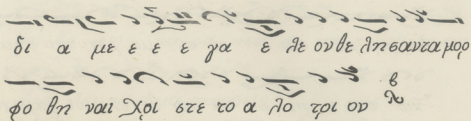 δι α με ε ε ε γα ε λε ον θε λη σαν τα μορ
φο θη ναι Χρι στε το α λο τρι ον